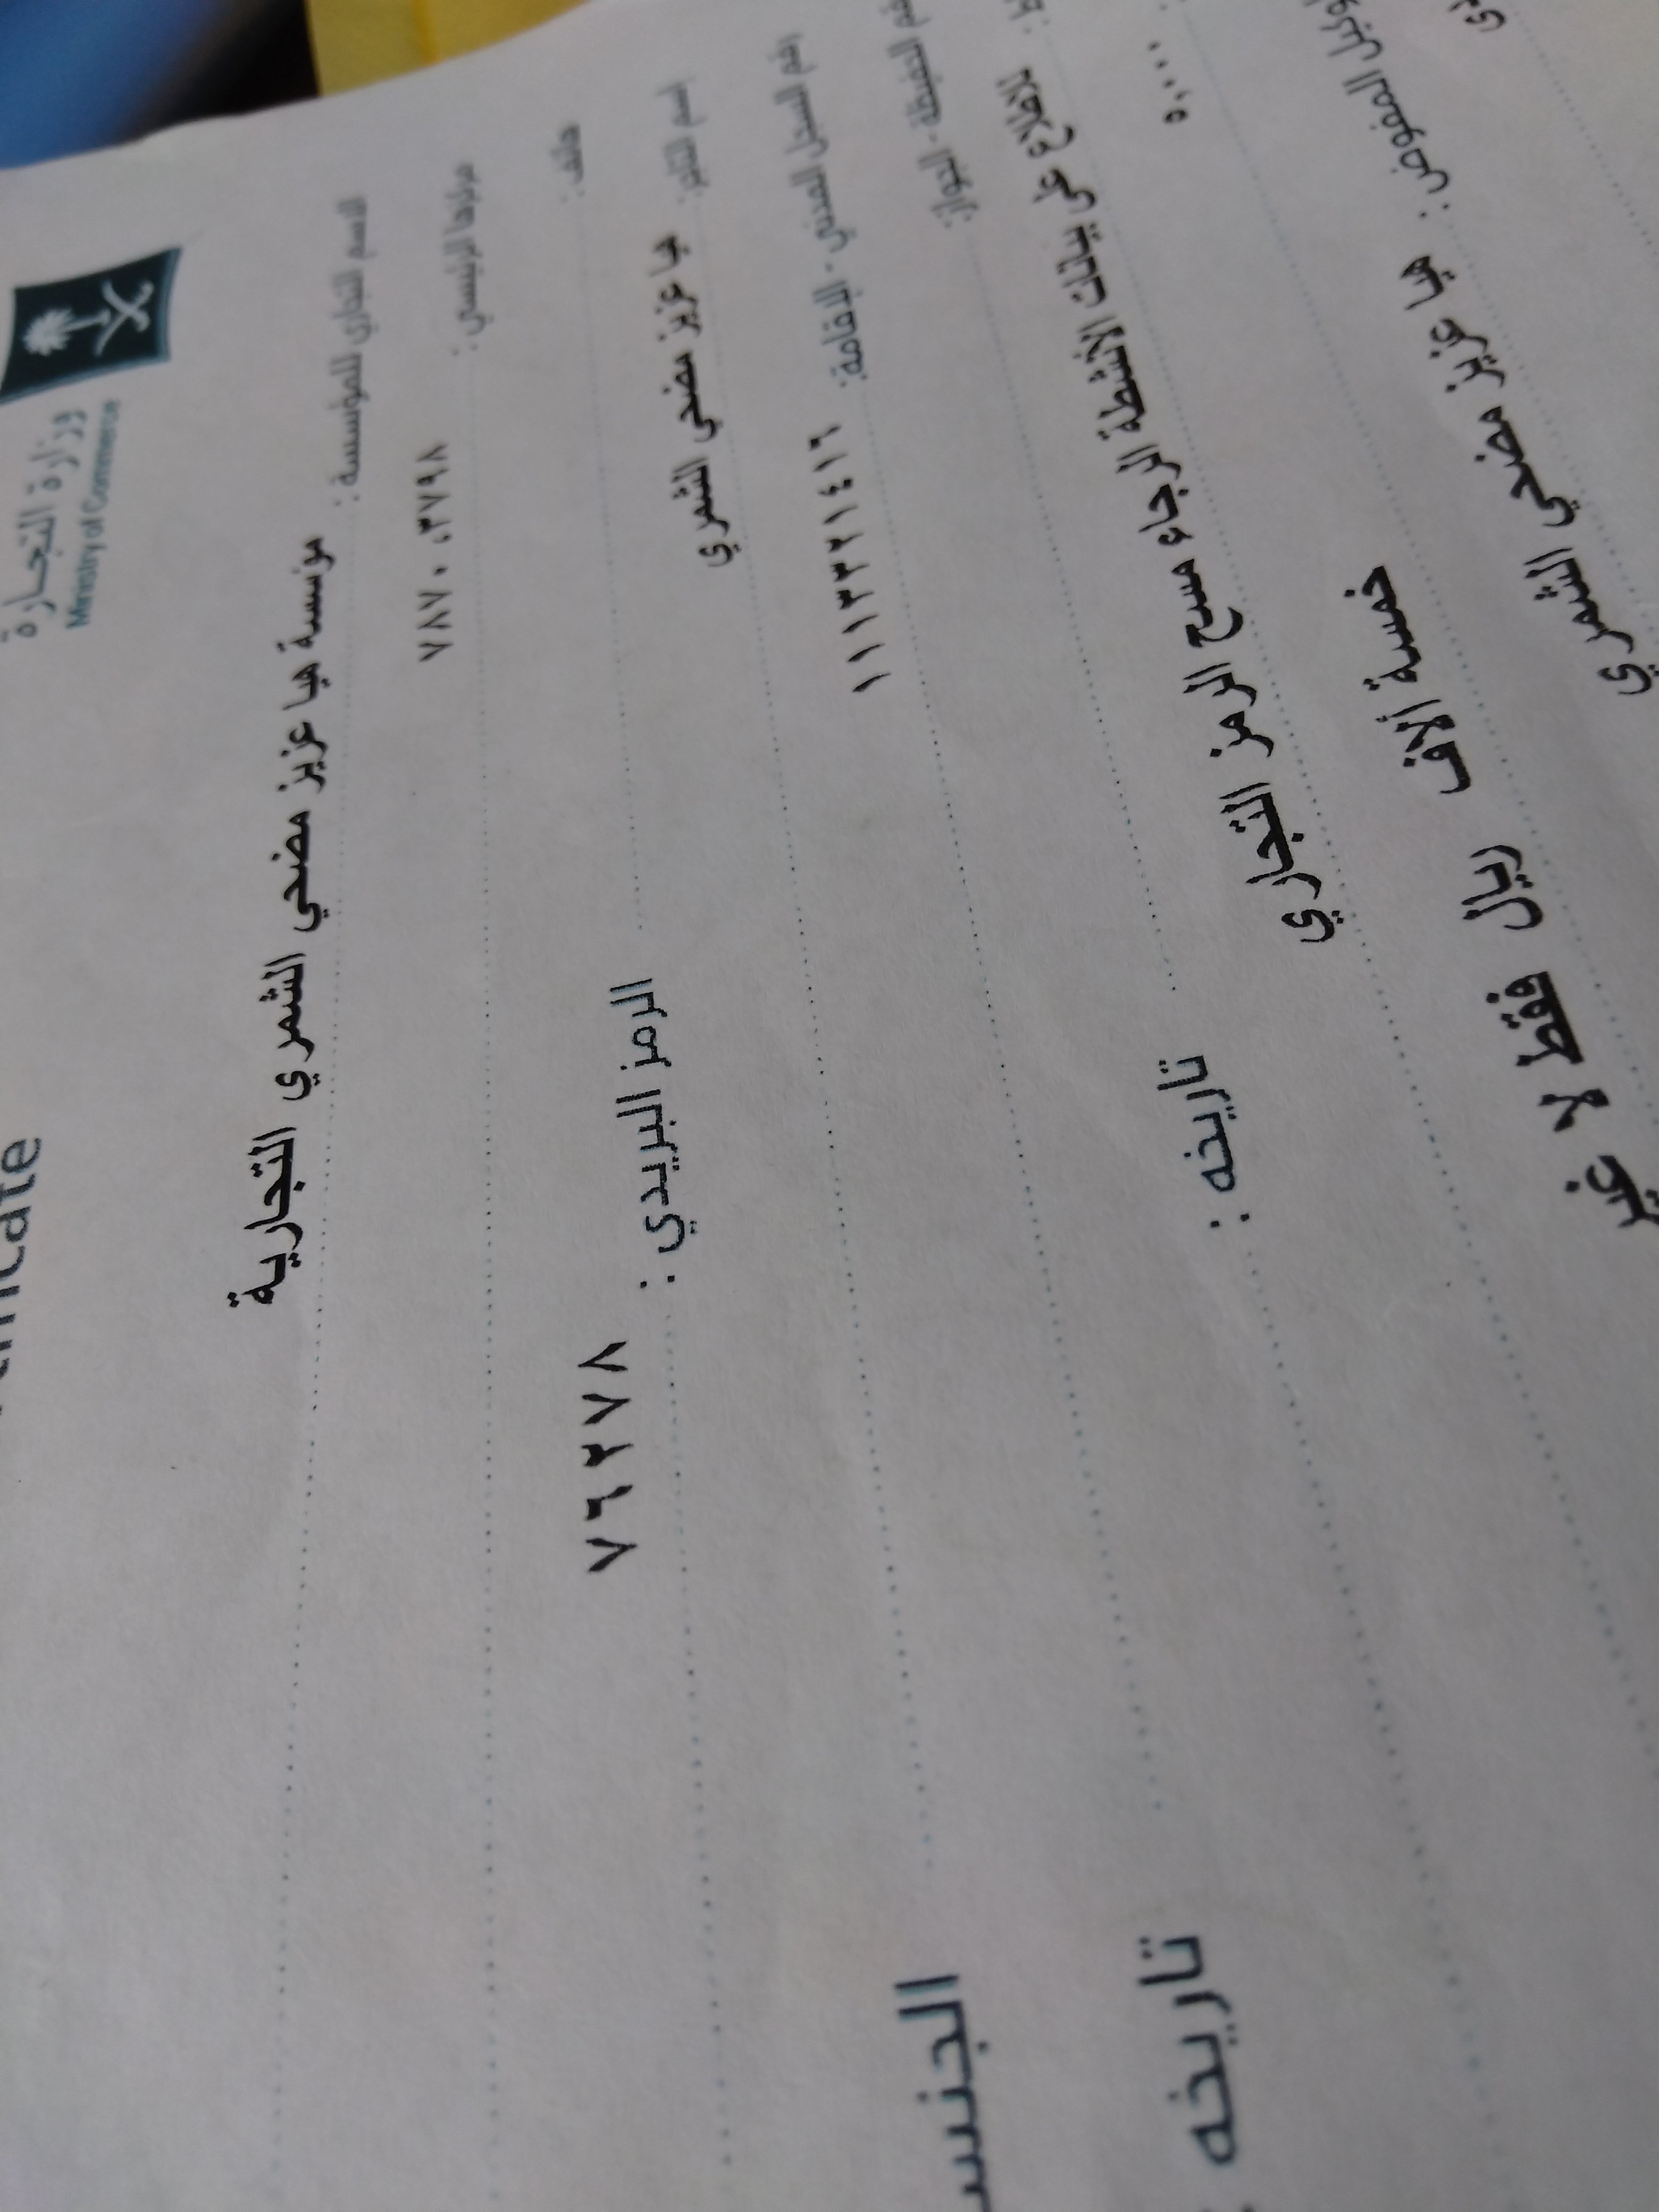 وزارة التجارة
Ministry of Commerce
الاسم التجاري للمؤسسة : مؤسسة هيا عزيز مضحي الشمري التجارية
مركزها الرئيسي :
هاتف : الرمز البريدي : ٧٨٢٦٧
اسم التاجر: هيا عزيز مضحي الشمري
رقم السجل المدني - الإقامة: ١١١٣٣٢١٤١٦
رقم الحفيظة - الجواز: تاريخه :
للاطلاع على بيانات الأنشطة الرجاء مسح الرمز التجاري
٥,٠٠٠ خمسة آلاف ريال فقط لا غير
المفوض : هيا عزيز مضحي الشمري
تاريخه :